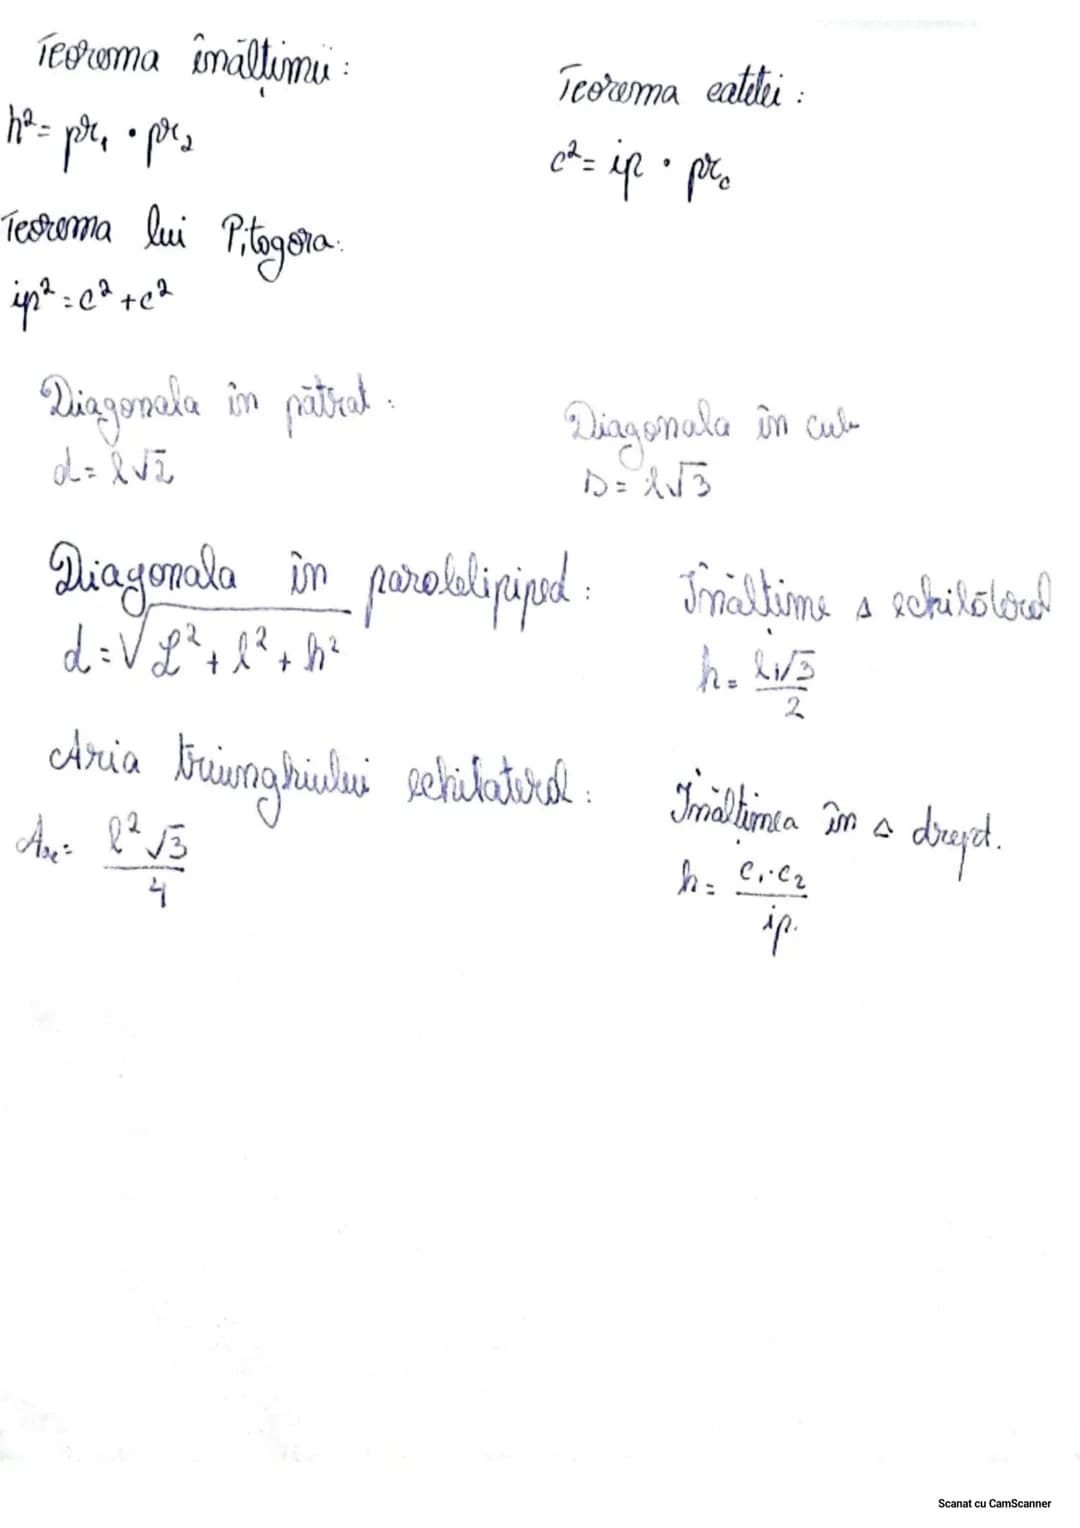 Teorema înălțimii:
h² = pr₁ · pr₂
Teorema catetei:
c² = ip · prc
Teorema lui Pitagora:
ip² = c² + c²
Diagonala în pătrat:
d = l√2
Diagonala în cub
D = l√3
Diagonala în paralelipiped:
d = √L² + l² + h²
Înălțime Δ echilateral
h = l√3/2
Aria triunghiului echilateral:
l²√3/4
Înălțimea în Δ drept.
h = c₁·c₂/ip.
Scanat cu CamScanner